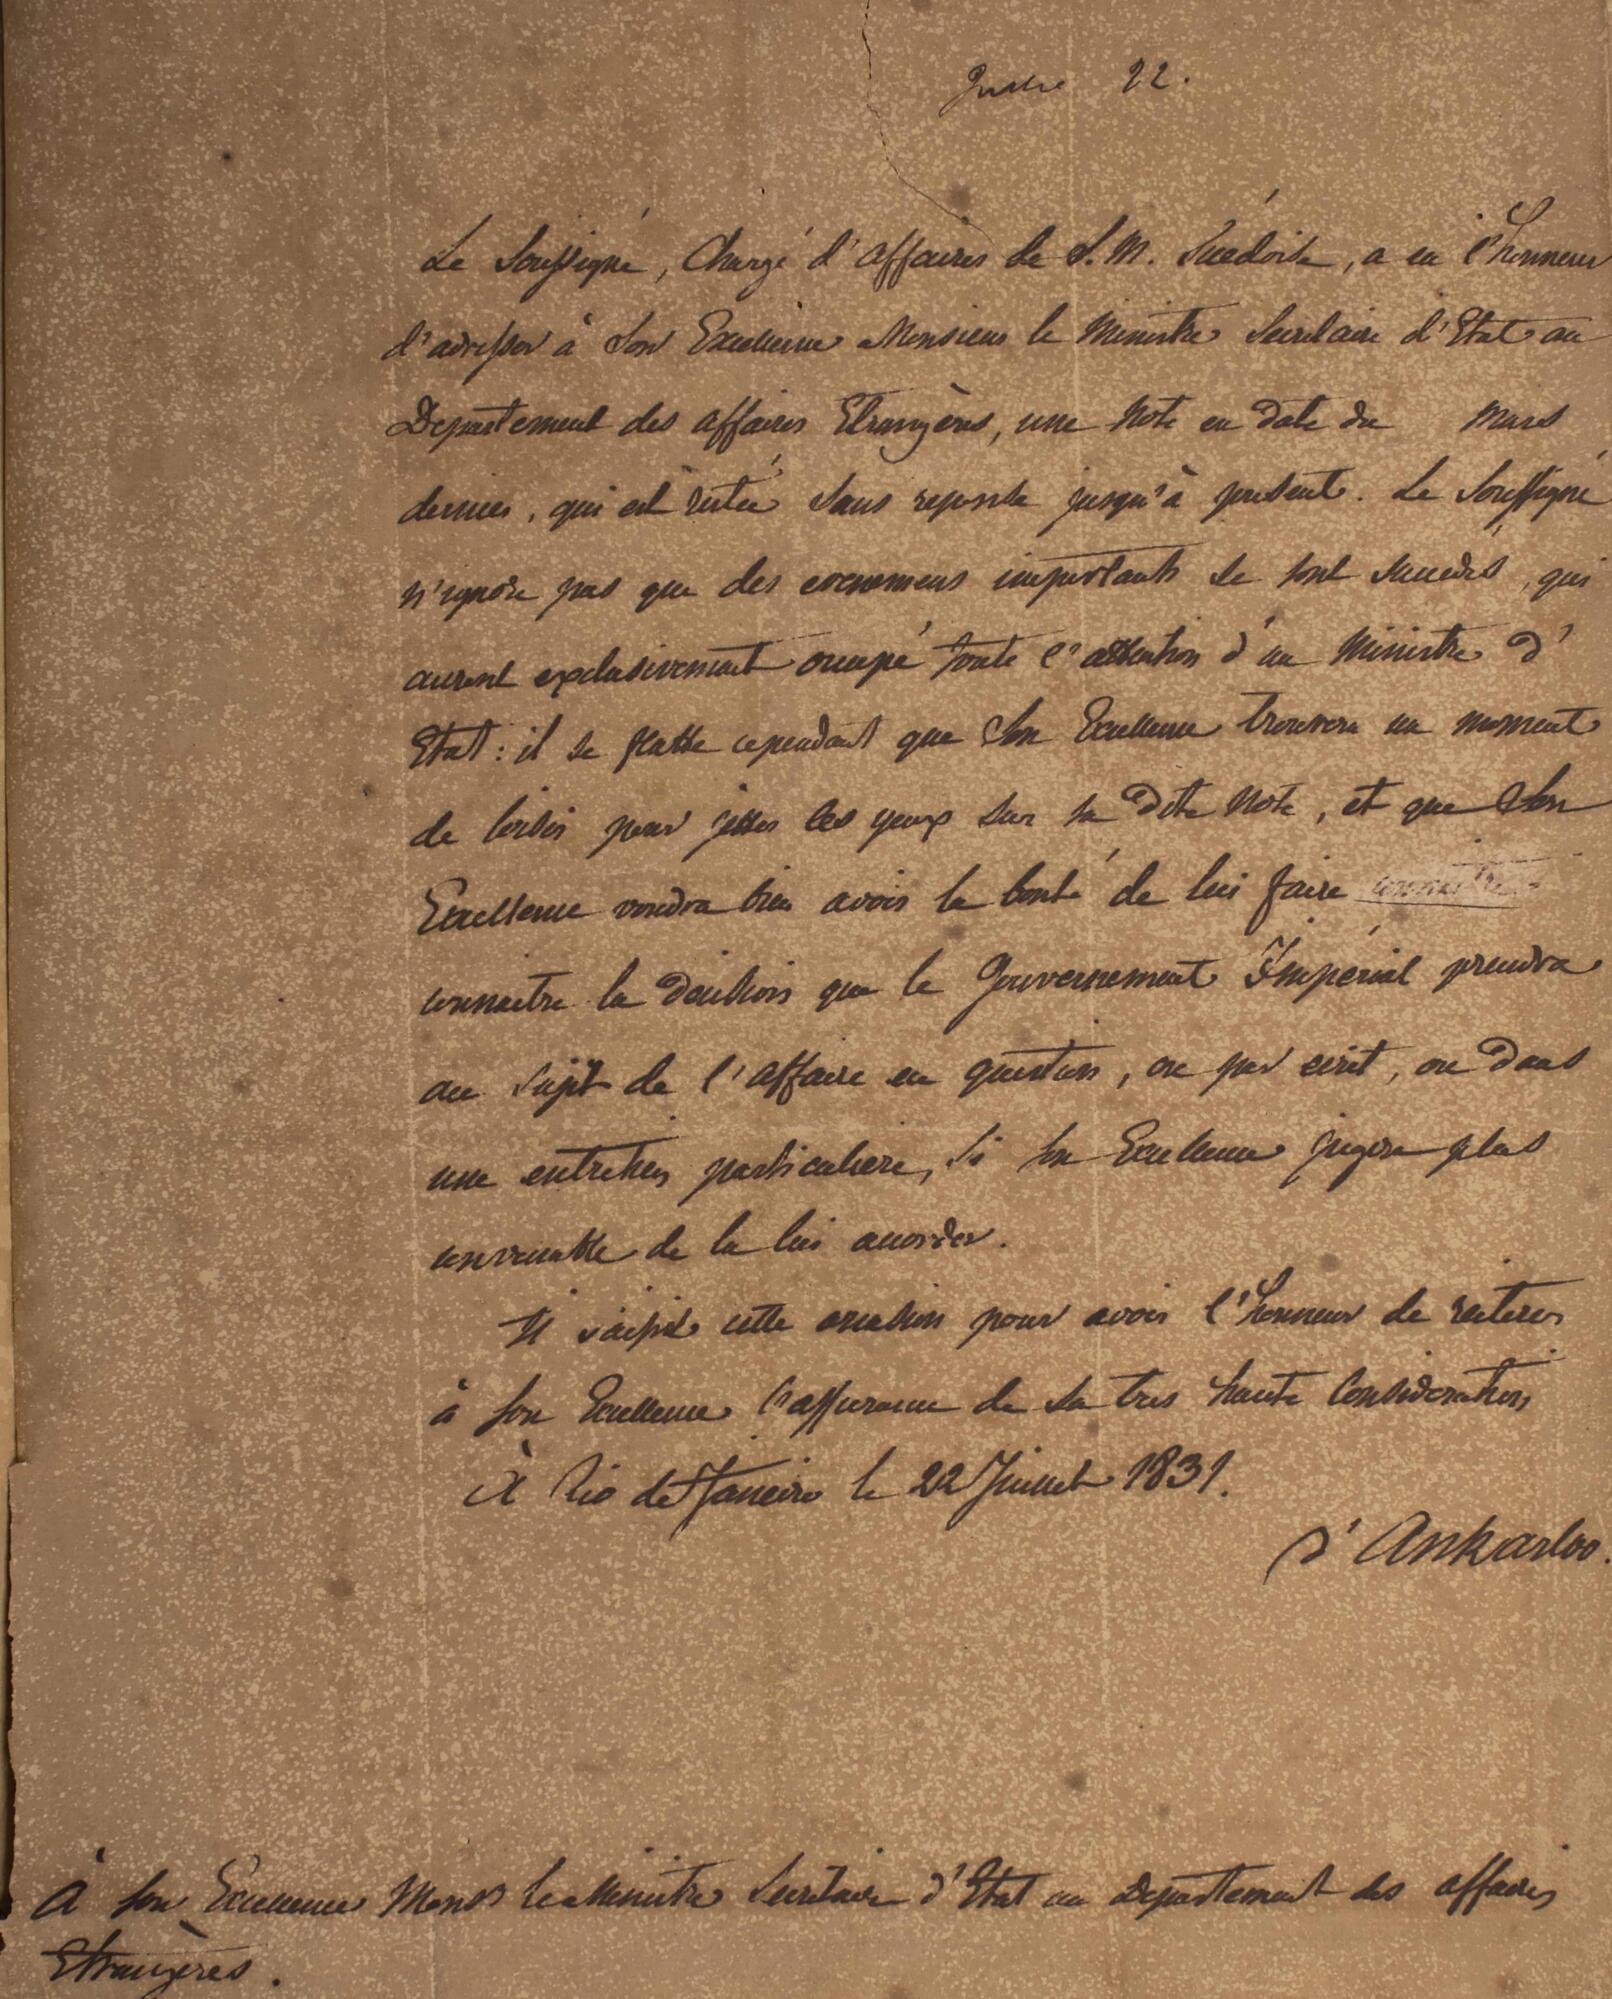 22.
Le Soussigné, Chargé d'affaires de S. M. Suédoise, a eu l'honneur
d'adresser à Son Excellence Monsieur le Ministre Secrétaire d'Etat au
Departement des affaires Etrangères, une Note en date du Mars
dernier, qui est restée sans reponse jusqu'à present. Le Soussigné
n'ignore pas que des evenemens importants se sont succedés, qui
auront exclusivement occupé toute l'attention d'un Ministre d'
Etat: il se flatte cependant que Son Excellence trouvera un moment
de loisir pour jetter les yeux sur sa dite Note, et que Son
Excellence voudra bien avoir la bonté de lui faire
connaitre la decision que le Gouvernement Impérial prendra
au sujet de l'affaire en question, ou par ecrit, ou dans
une entretien particuliere, si Son Excellence jugera plus
convenable de la lui accorder.
Il saisit cette occasion pour avoir l'honneur de reiterer
à Son Excellence l'assurance de sa tres haute Consideration
À Rio de Janeiro le 22 Juillet 1831.
d'Ankarloo.
À Son Excellence Monsr le Ministre Secretaire d'Etat au Departement des affaires
Etrangères.